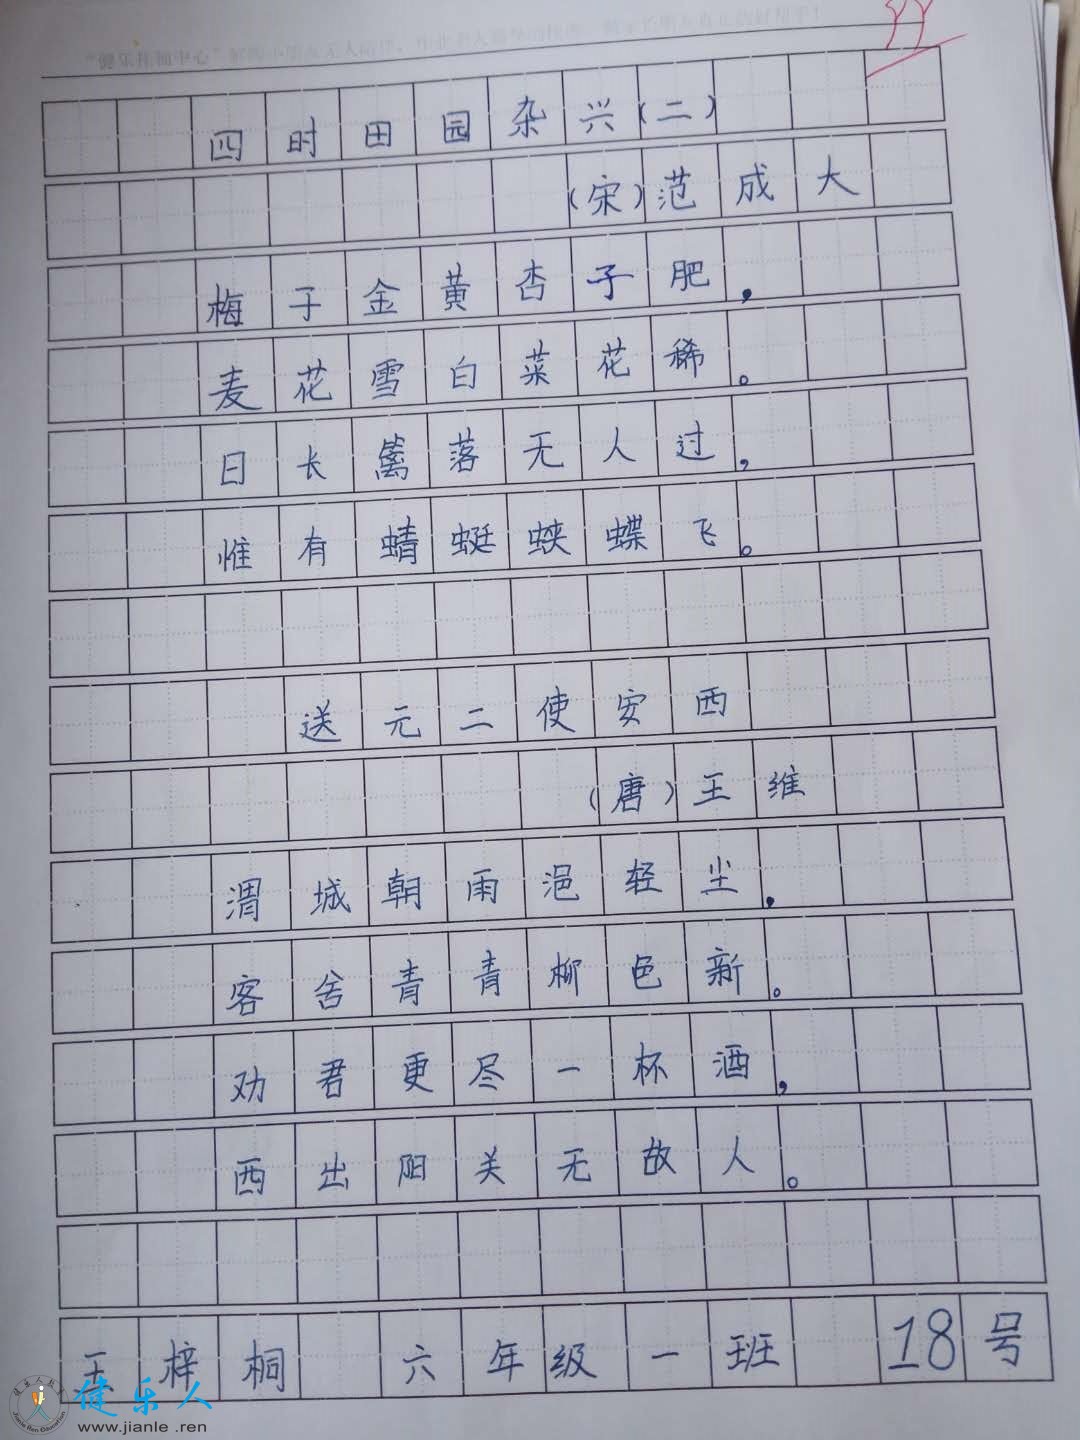 99
四时田园杂兴(二)
(宋)范成大
梅子金黄杏子肥,
麦花雪白菜花稀。
日长篱落无人过,
惟有蜻蜓蛱蝶飞。
送元二使安西
(唐)王维
渭城朝雨浥轻尘,
客舍青青柳色新。
劝君更尽一杯酒,
西出阳关无故人。
王梓桐 六年级一班 18号
健乐人
www.jianle .ren